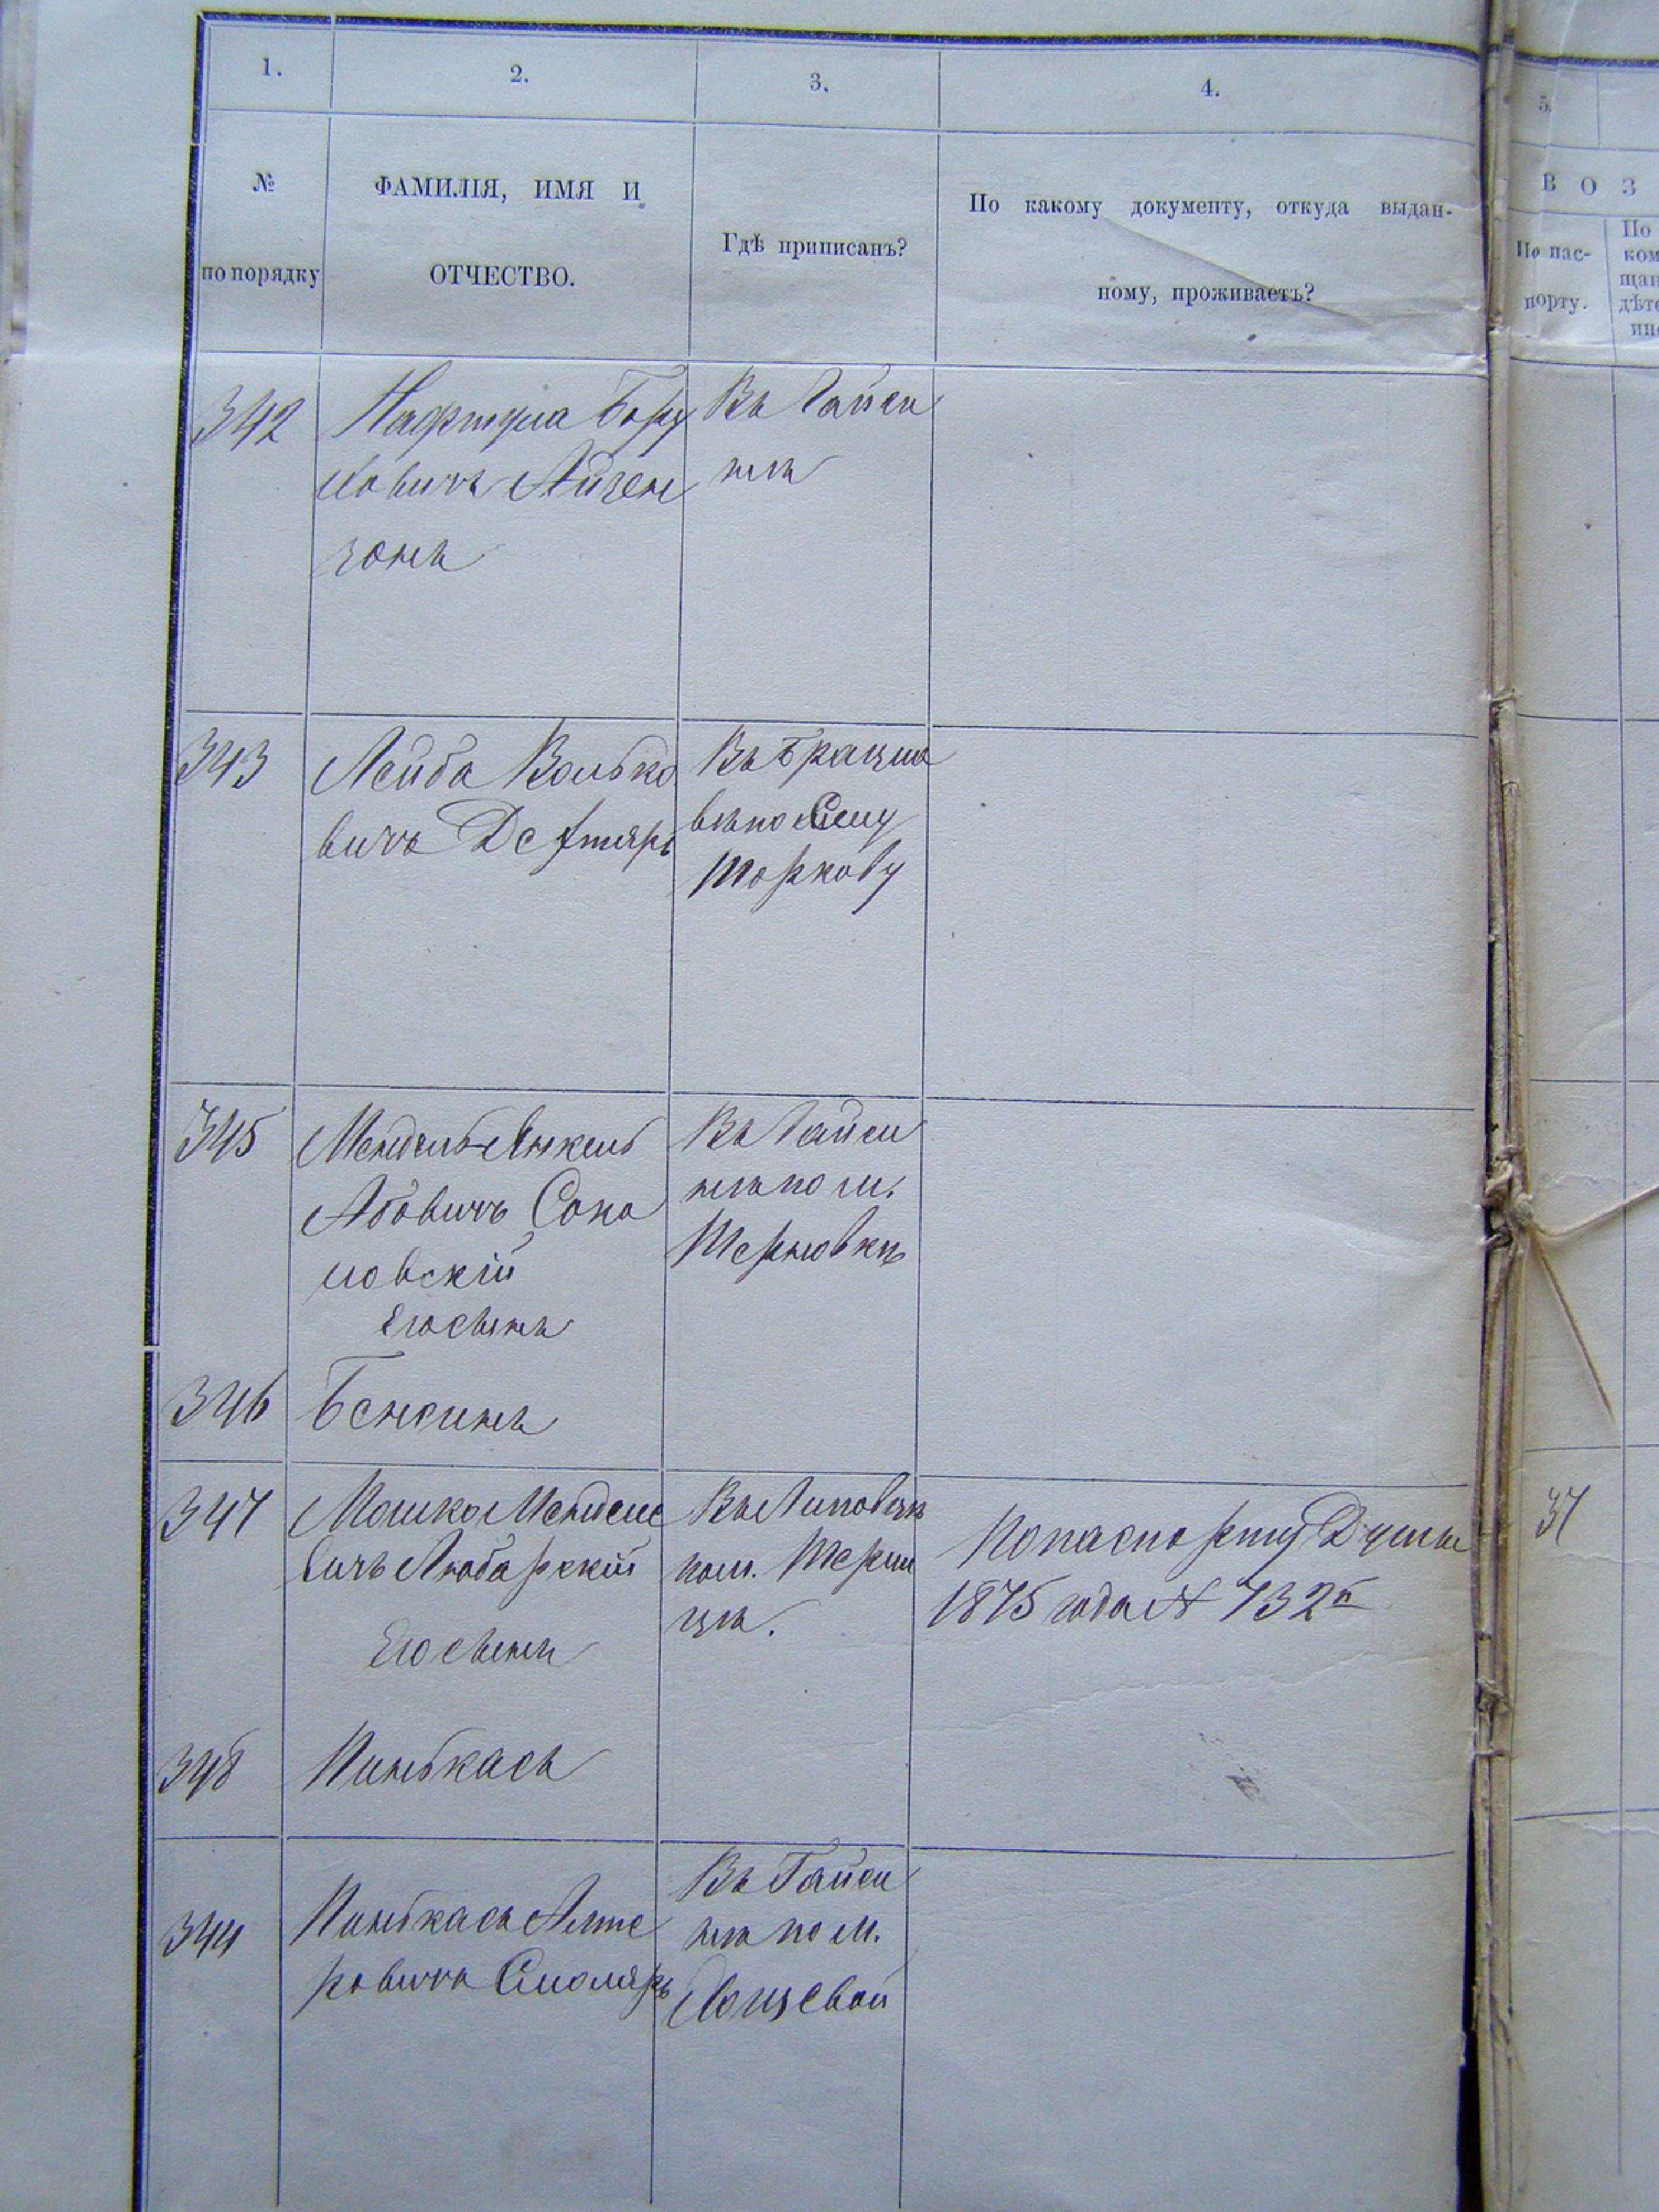 1.
2.
3.
4.
5.
№
по порядку
ФАМИЛІЯ, ИМЯ И
ОТЧЕСТВО.
Гдѣ приписанъ?
По какому документу, откуда выдан-
ному, проживаетъ?
В О З
По пас-
порту.
По
ком
щан
дѣте
ин
342
Нафтула Бору
ховичъ Айзен
зонъ
Въ Гайси
нѣ
343
Лейба Волько
вичъ Дехтярь
Въ Брацла
вѣ по селу
Торкову
345
Мендель-Янкель
Абовичъ Соко
ловскій
Его сынъ
Въ Гайси
нѣ по м.
Терновкѣ
346
Бенсинъ
347
Мошко Менделе
вичъ Любарскій
Его сынъ
Въ Липовцѣ
по м.
По паспорту Думы
1875 года № 732й
37
348
Пинькасъ
344
Пинькасъ Алте
ровичъ Смоляръ
Въ Гайси
нѣ по м.